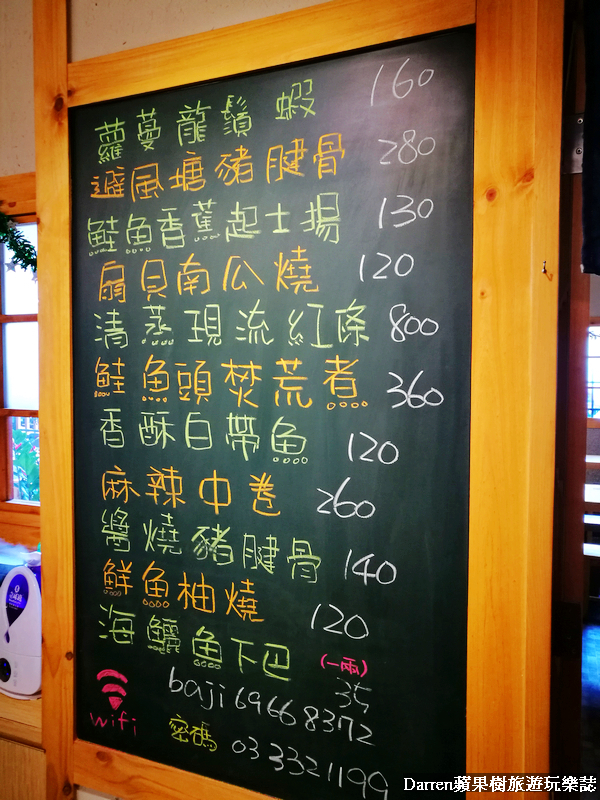 蘿蔓龍鬚蝦 160
避風塘豬腱骨 280
鮭魚香蕉起士揚 130
扇貝南瓜燒 120
清蒸現流紅條 800
鮭魚頭焚荒煮 360
香酥白帶魚 120
麻辣中卷 260
醬燒豬腱骨 140
鮮魚柚燒 120
海鱺魚下巴 (一兩) 35
wifi baji69668372
密碼 033321199
Darren蘋果樹旅遊玩樂誌